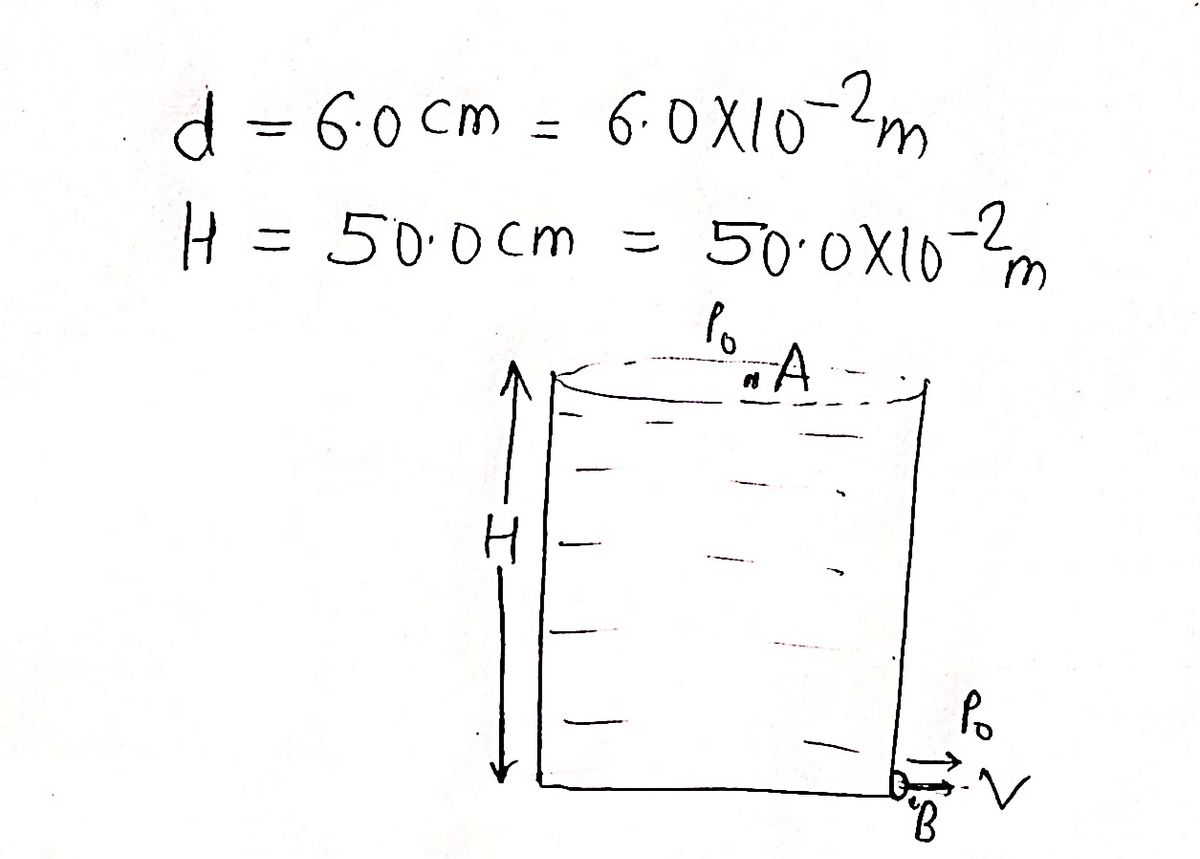 d = 6.0 cm = 6.0 X 10⁻² m
H = 50.0 cm = 50.0 X 10⁻² m
P₀
A
H
P₀
V
B